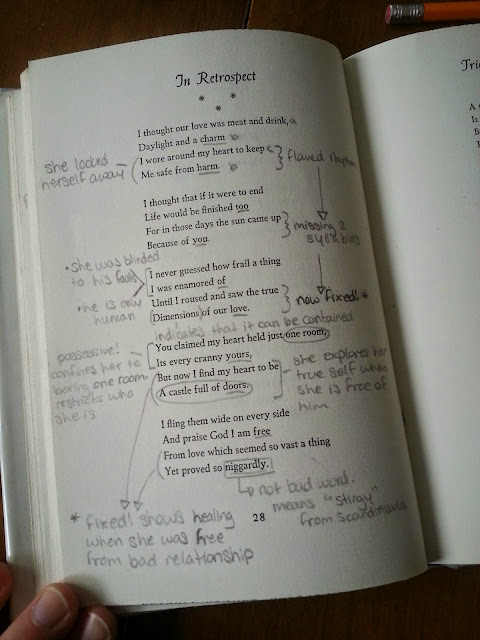 In Retrospect
* * *
I thought our love was meat and drink, a
Daylight and a charm b
I wore around my heart to keep c
Me safe from harm. b
she locked
herself away
flawed rhythm
I thought that if it were to end
Life would be finished too
For in those days the sun came up
Because of you.
missing 2
syllables
• she was blinded
to his faults
• he is only
human
I never guessed how frail a thing
I was enamored of
Until I roused and saw the true
Dimensions of our love.
now fixed! *
indicates that it can be contained
You claimed my heart held just one room,
Its every cranny yours,
But now I find my heart to be
A castle full of doors.
possessive!
confines her to
boring, one room,
restricts who
she is
she explores her
true self when
she is free of
him
I fling them wide on every side
And praise God I am free
From love which seemed so vast a thing
Yet proved so niggardly.
not bad word.
means "stingy"
from Scandinavia
28
* fixed! shows healing
when she was free
from bad relationship
Tri
A
It